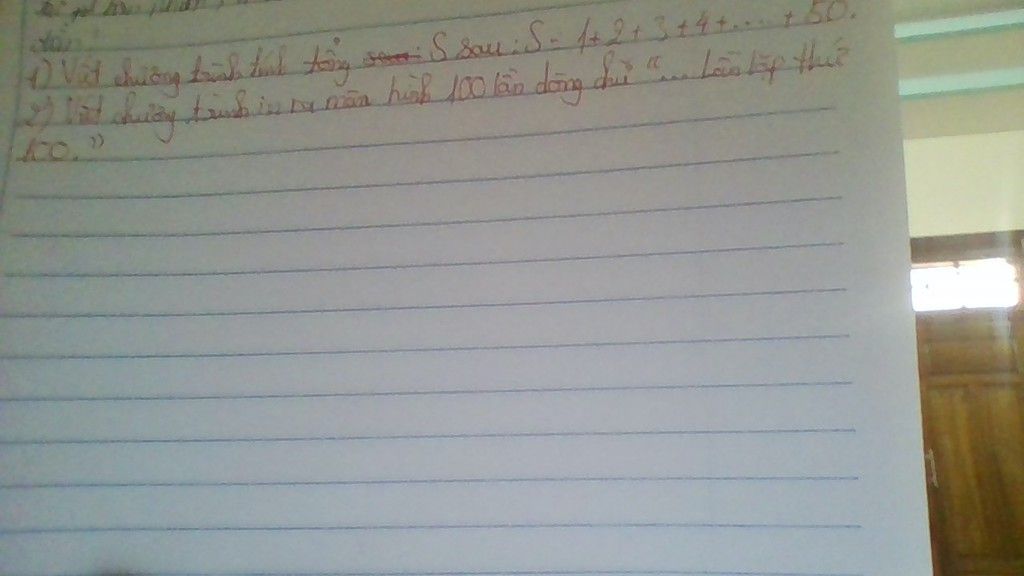 1) Viết chương trình tính tổng S sau: S = 1+2+3+4+....+50.
2) Viết chương trình in ra màn hình 100 lần dòng chữ "... Lần lặp thứ
100."